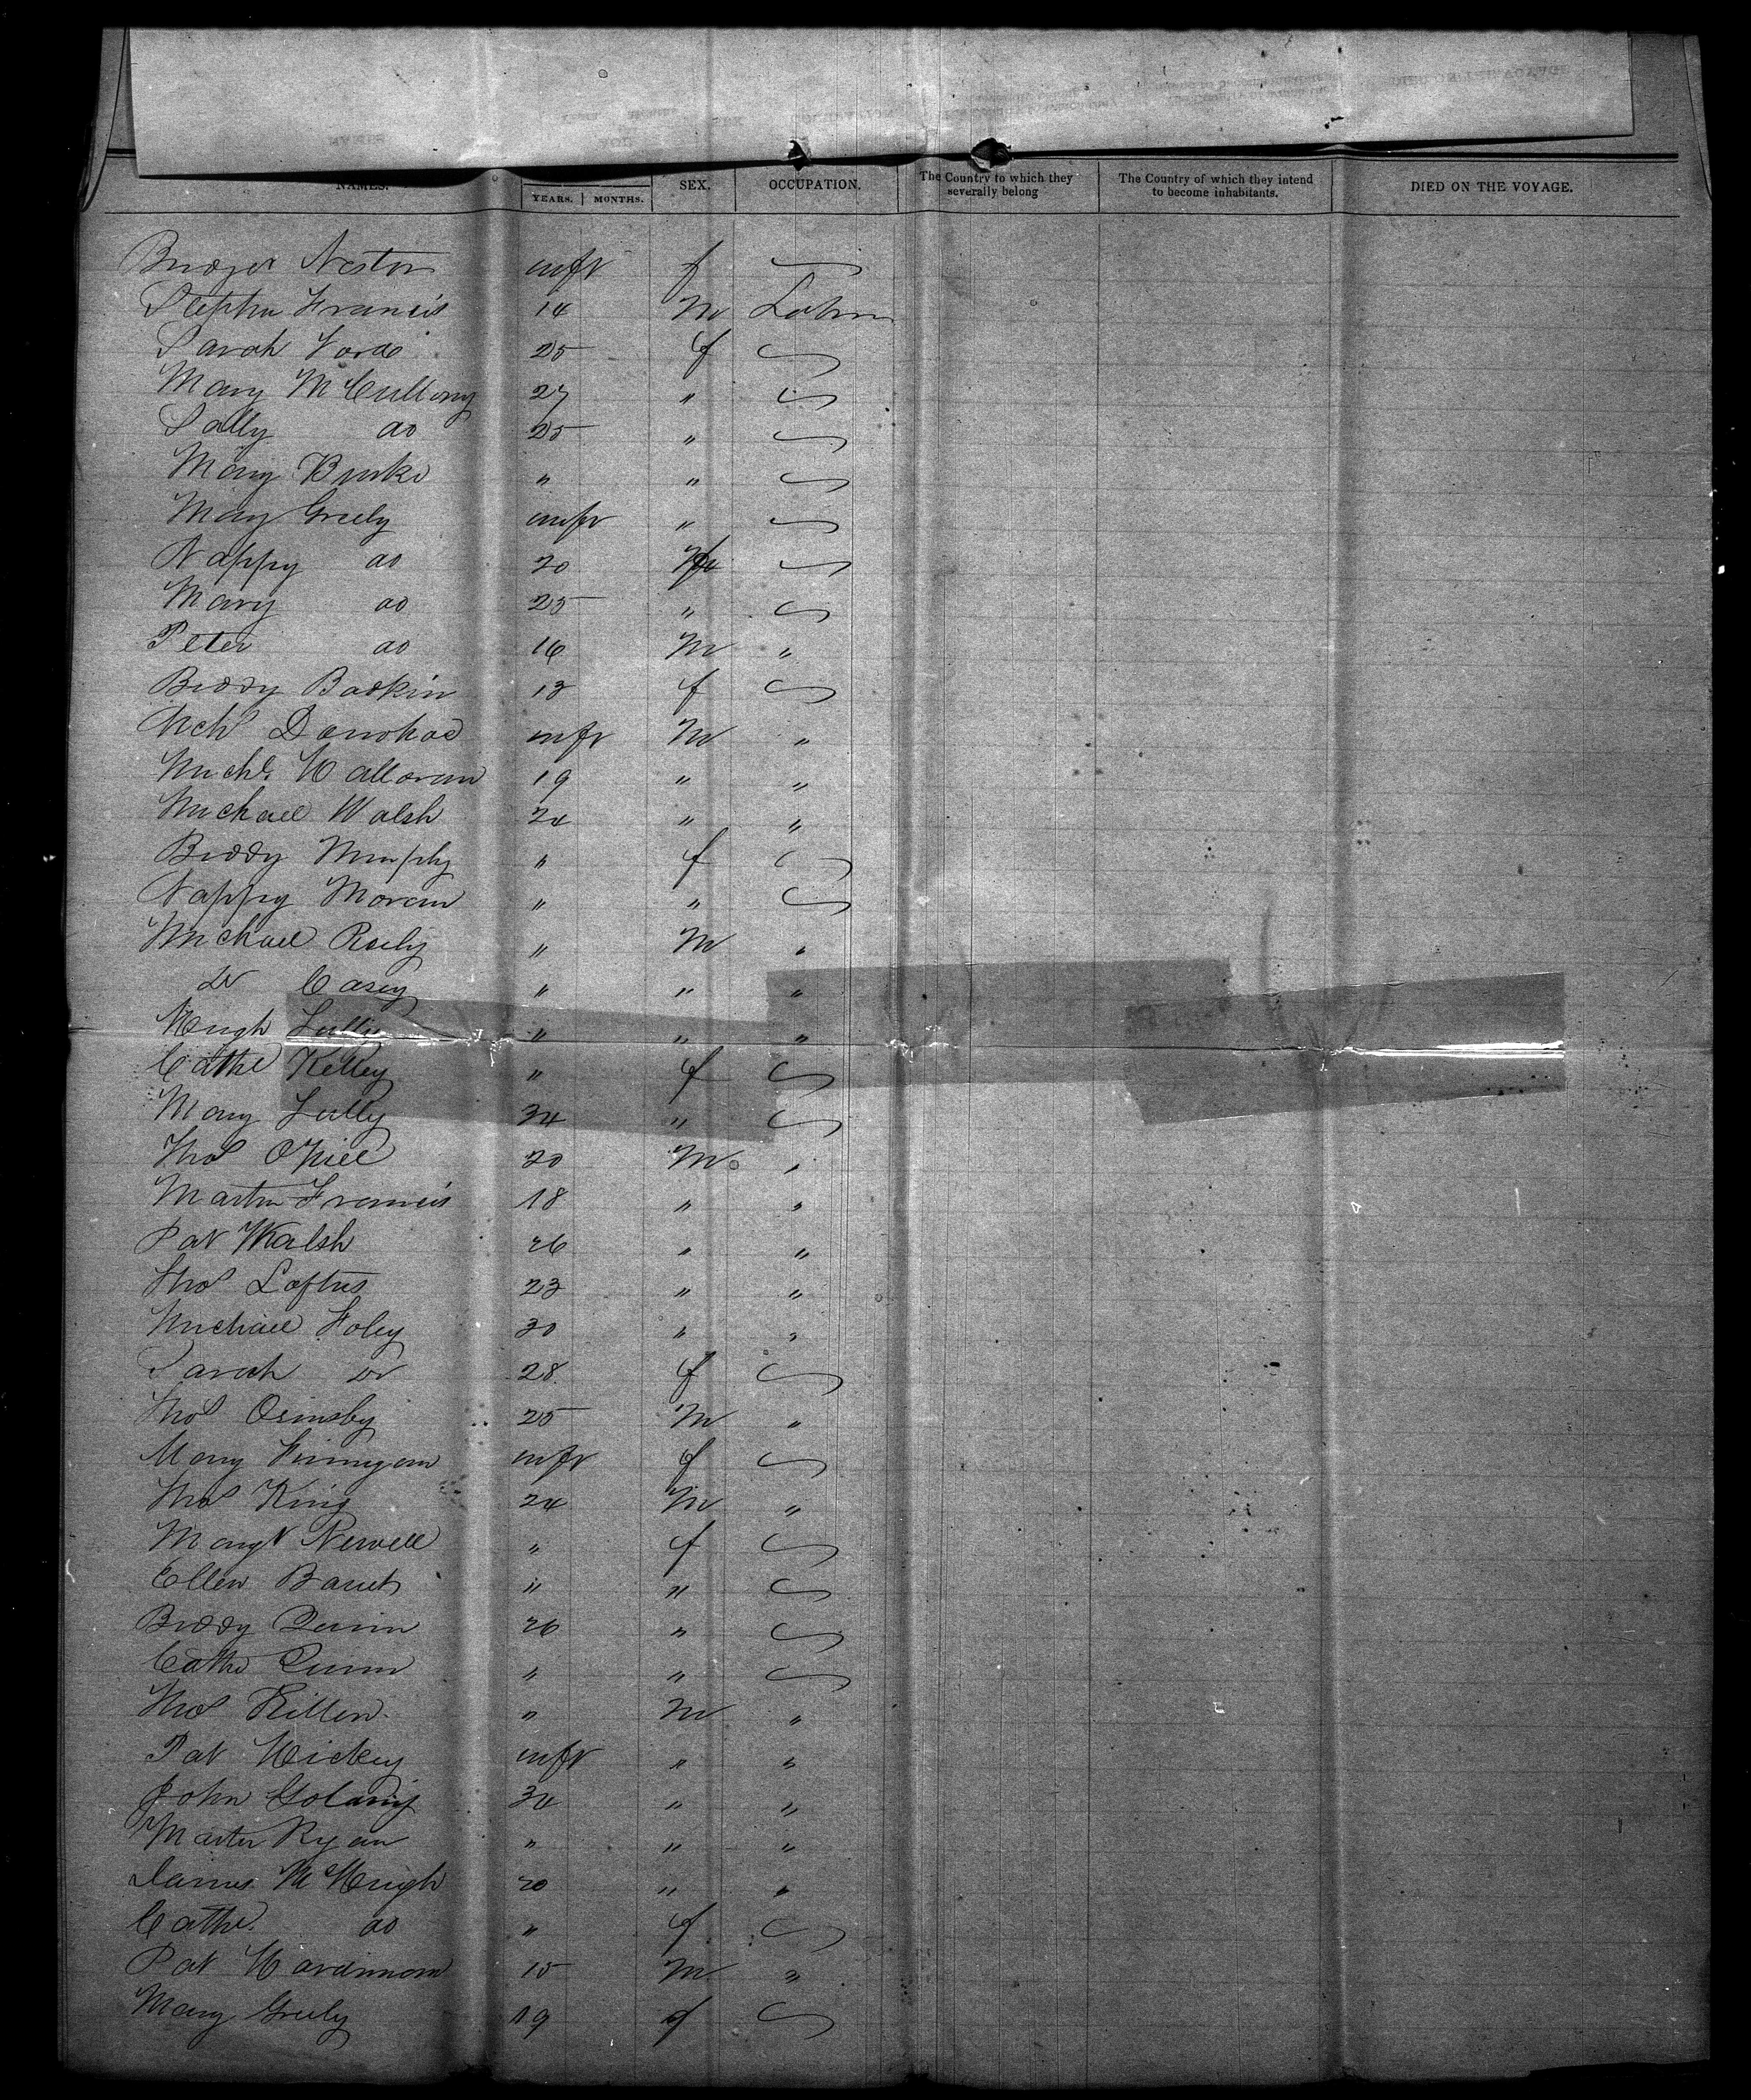 NAMES. YEARS. MONTHS. SEX. OCCUPATION. The Country to which they severally belong The Country of which they intend to become inhabitants. DIED ON THE VOYAGE.
Nestor inft f
Stephn Francis 14 M Labr
Sarah 25 f
Mary McCullony 27 "
Sally do 25 "
Mary Burke " "
Mary Greely inft "
Nappy do 20
Mary do 25 "
Peter do 16 M "
Biddy Badkin 13 f
Donohoe inft M "
Michl Halloran 19 " "
Michael Walsh 24 " "
Biddy Murphy " f
Nappy Moran " "
Michael Reily " M "
Do Casey " " "
Hugh Lully " " "
Cathe Kelley " f
Mary Lully 34 "
Thos ONiell 20 M "
Martin Francis 18 " "
Pat Walsh 26 " "
Thos Loftus 23 " "
Michael Foley 30 " "
Sarah Do 28 f
Thos Ormsby 25 M "
Mary Finnigan inft f
Thos King 24 M "
Margt Newell " f
Ellen Barrett " "
Biddy Quinn 26 "
Cathe Quinn " "
Thos Killen " M "
Pat Hickey inft " "
John 34 " "
Martin Ryan " " "
James McHugh 20 " "
Cathe do " f
Pat 15 M "
Mary Greely 19 f